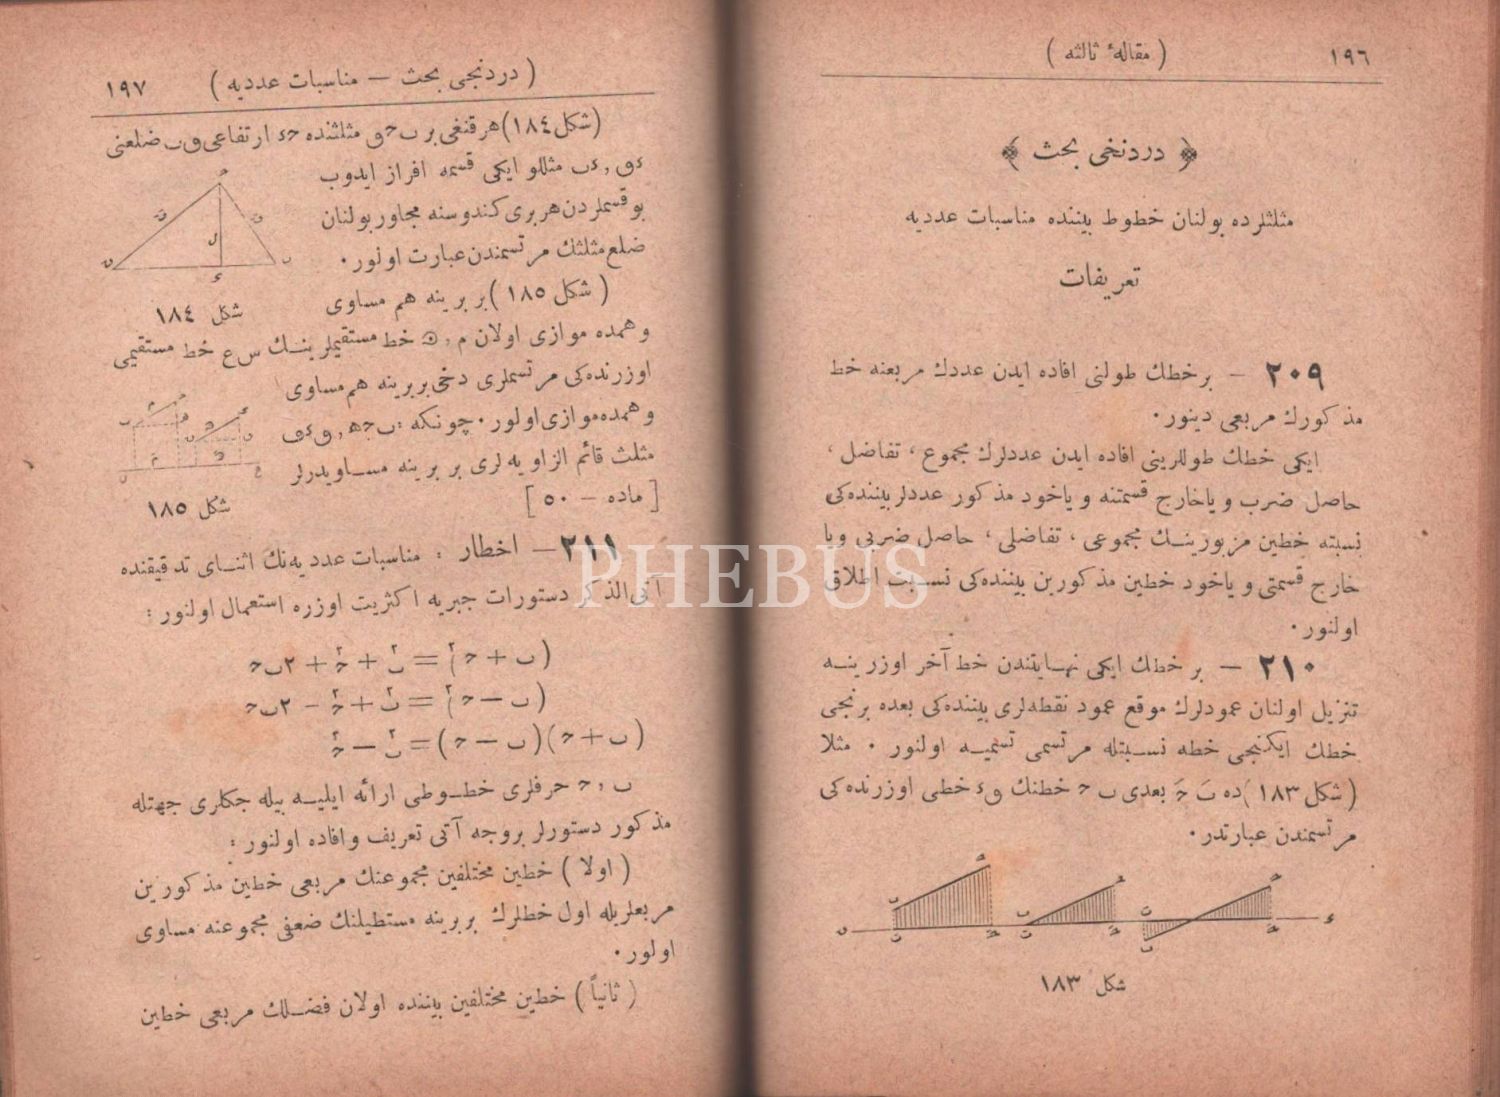 ١٩٦ ( مقالهٔ ثالثه )
﴿ دردنجی بحث ﴾
مثلثلرده بولنان خطوط بیننده مناسبات عددیه
تعریفات
٢٠٩ – بر خطك طولنی افاده ایدن عددك مربعنه خط
مذكورك مربعی دینور.
ایكی خطك طوللرینی افاده ایدن عددلرك مجموع ، تفاضل ،
حاصل ضرب و یا خارج قسمتنه و یاخود مذكور عددلر بیننده‌كی
نسبته خطین مزبورینـك مجموعی ، تفاضلی ، حاصل ضربی ویا
خارج قسمتی و یاخود خطین مذكورین بیننده‌كی نسبت اطلاق
اولنور.
٢١٠ – بر خطك ایكی نهـایتندن خط آخر اوزرینـه
تنزیل اولنان عمودلرك موقع عمود نقطه‌لری بیننده‌كی بعده برنجی
خطك ایكنجی خطه نسـبتله مرتسمی تسمیـه اولنور . مثلا
( شكل ١٨٣ ) ده بَ حَ بعدی ب ح خطنك ق ء خطی اوزرنده‌كی
مرتسمندن عبارتدر.
شكل ١٨٣
( دردنجی بحث — مناسبات عددیه ) ١٩٧
( شكل ١٨٤ ) هرقنغی بر ب ح ق مثلثنده ح ء ارتفاعی ق ب ضلعنی
ء ق , ء ب مثللو ایكی قسمه افراز ایدوب
بو قسملردن هر بری كندوسنه مجاور بولنان
ضلع مثلثك مرتسمندن عبارت اولور.
شكل ١٨٤
( شكل ١٨٥ ) بر برینه هم مساوی
وهمده موازی اولان م , ﻫ خط مستقیملرینـك س ع خط مستقیمی
اوزرنده‌كی مرتسملری دخی بر برینه هم مساوی
وهمده موازی اولور . چونكه : ب ح ﻫ , ق ء ف
مثلث قائم الزاویه‌لری بر برینه مسـاویدرلر
[ ماده – ٥٠ ]
شكل ١٨٥
٢١١ – اخطار : مناسبات عددیه‌نك اثنـای تدقیقنده
آتی الذكر دستورات جبریه اكثریت اوزره استعمال اولنور :
(ب + ح)٢ = ب٢ + ح٢ + ٢ب ح
(ب – ح)٢ = ب٢ + ح٢ – ٢ب ح
(ب + ح)(ب – ح) = ب٢ – ح٢
ب , ح حرفلری خطـوطی ارائه ایلیـه بیله جكلری جهتله
مذكور دستورلر بروجه آتی تعریف و افاده اولنور :
( اولا ) خطین مختلفین مجموعنك مربعی خطین مذكورین
مربعلریله اول خطلرك بر برینه مستطیلنك ضعفی مجموعنه مساوی
اولور.
( ثانیاً ) خطین مختلفین بیننده اولان فضـلك مربعی خطین
PHEBUS